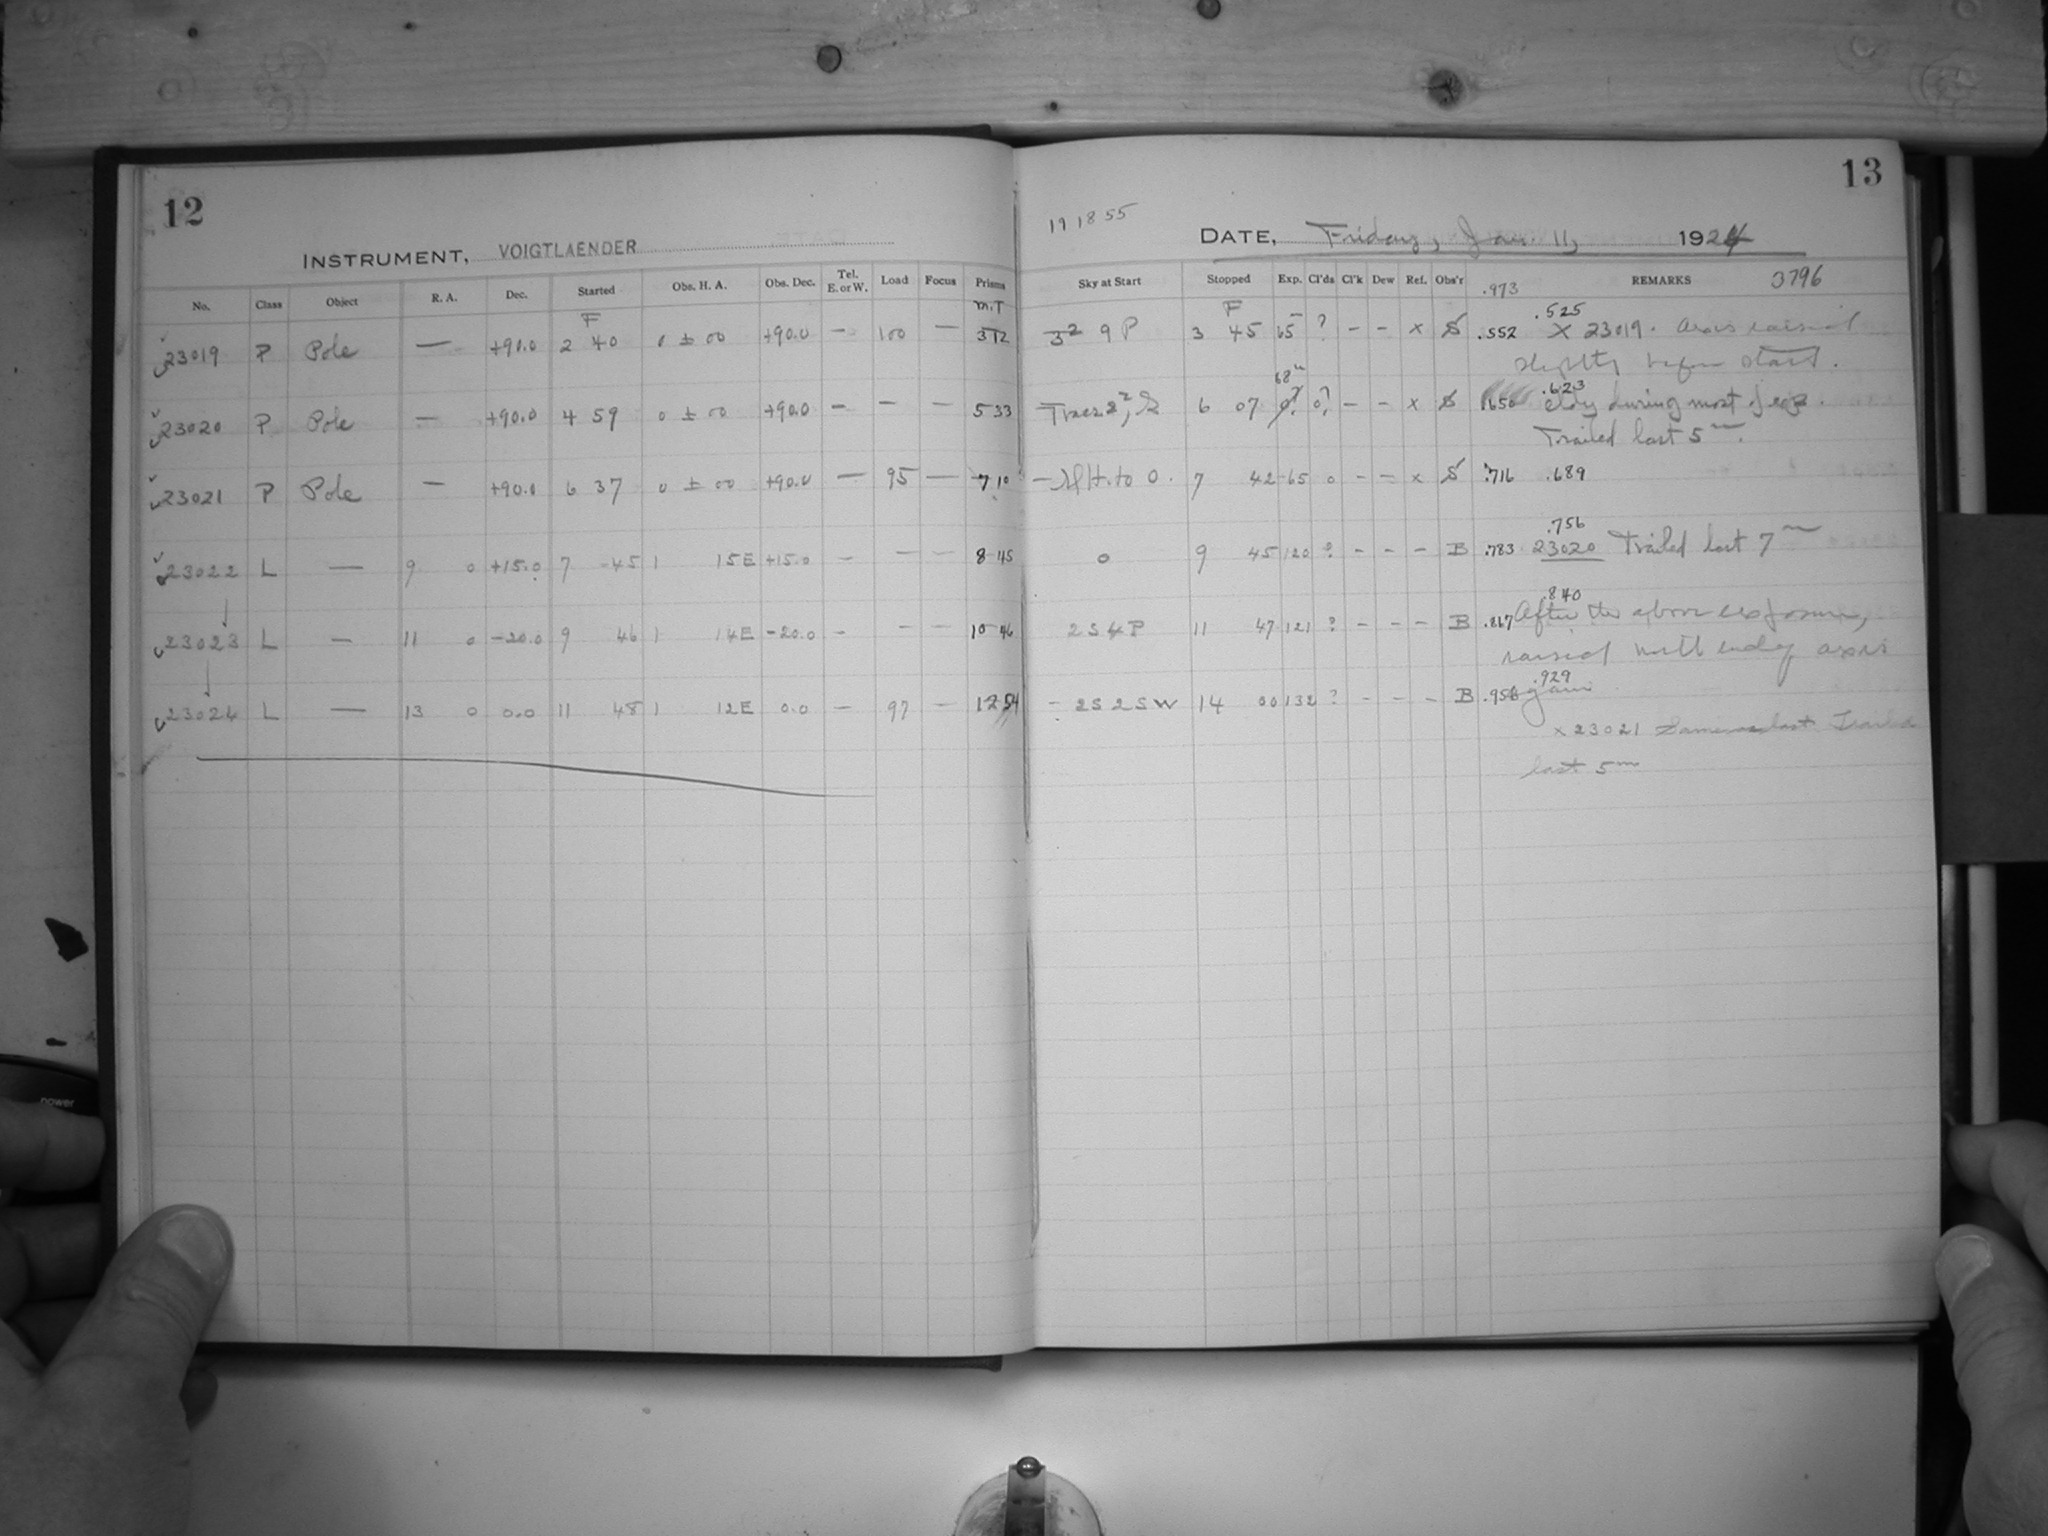 12
INSTRUMENT, VOIGTLAENDER
No. Class Object R. A. Dec. Started Obs. H. A. Obs. Dec. Tel. E. or W. Load Focus Prisms
F m.T
23019 P Pole — +90.0 2 40 0 ± 00 +90.0 — 100 — 3 12
23020 P Pole — +90.0 4 59 0 ± 00 +90.0 — — — 5 33
23021 P Pole — +90.0 6 37 0 ± 00 +90.0 — 95 — 7 10
23022 L — 9 0 +15.0 7 45 1 15E +15.0 — — — 8 45
23023 L — 11 0 -20.0 9 46 1 14E -20.0 — — — 10 46
23024 L — 13 0 0.0 11 48 1 12E 0.0 — 97 — 12 54
13
19 18 55
DATE, Friday, Jan. 11, 1924
Sky at Start Stopped Exp. Cl'ds Cl'k Dew Ref. Obs'r .973 REMARKS 3796
F .525
3² 9 P 3 45 65 ? — — x S .552 X 23019. Axis raised
slightly before start.
68m .623
6 07 0? — — x S .650 cldy during most of exp.
Trailed last 5m.
to 0. 7 42 65 0 — — x S .716 .689
.756
0 9 45 120 ? — — — B .783 23020 Trailed last 7m
.840
2 S 4 P 11 47 121 ? — — — B .867 After the above exposure,
raised north end of axis
.929
— 2 S 2 S W 14 00 132 ? — — — B .956 again
x 23021 Same as last Trailed
last 5m
power